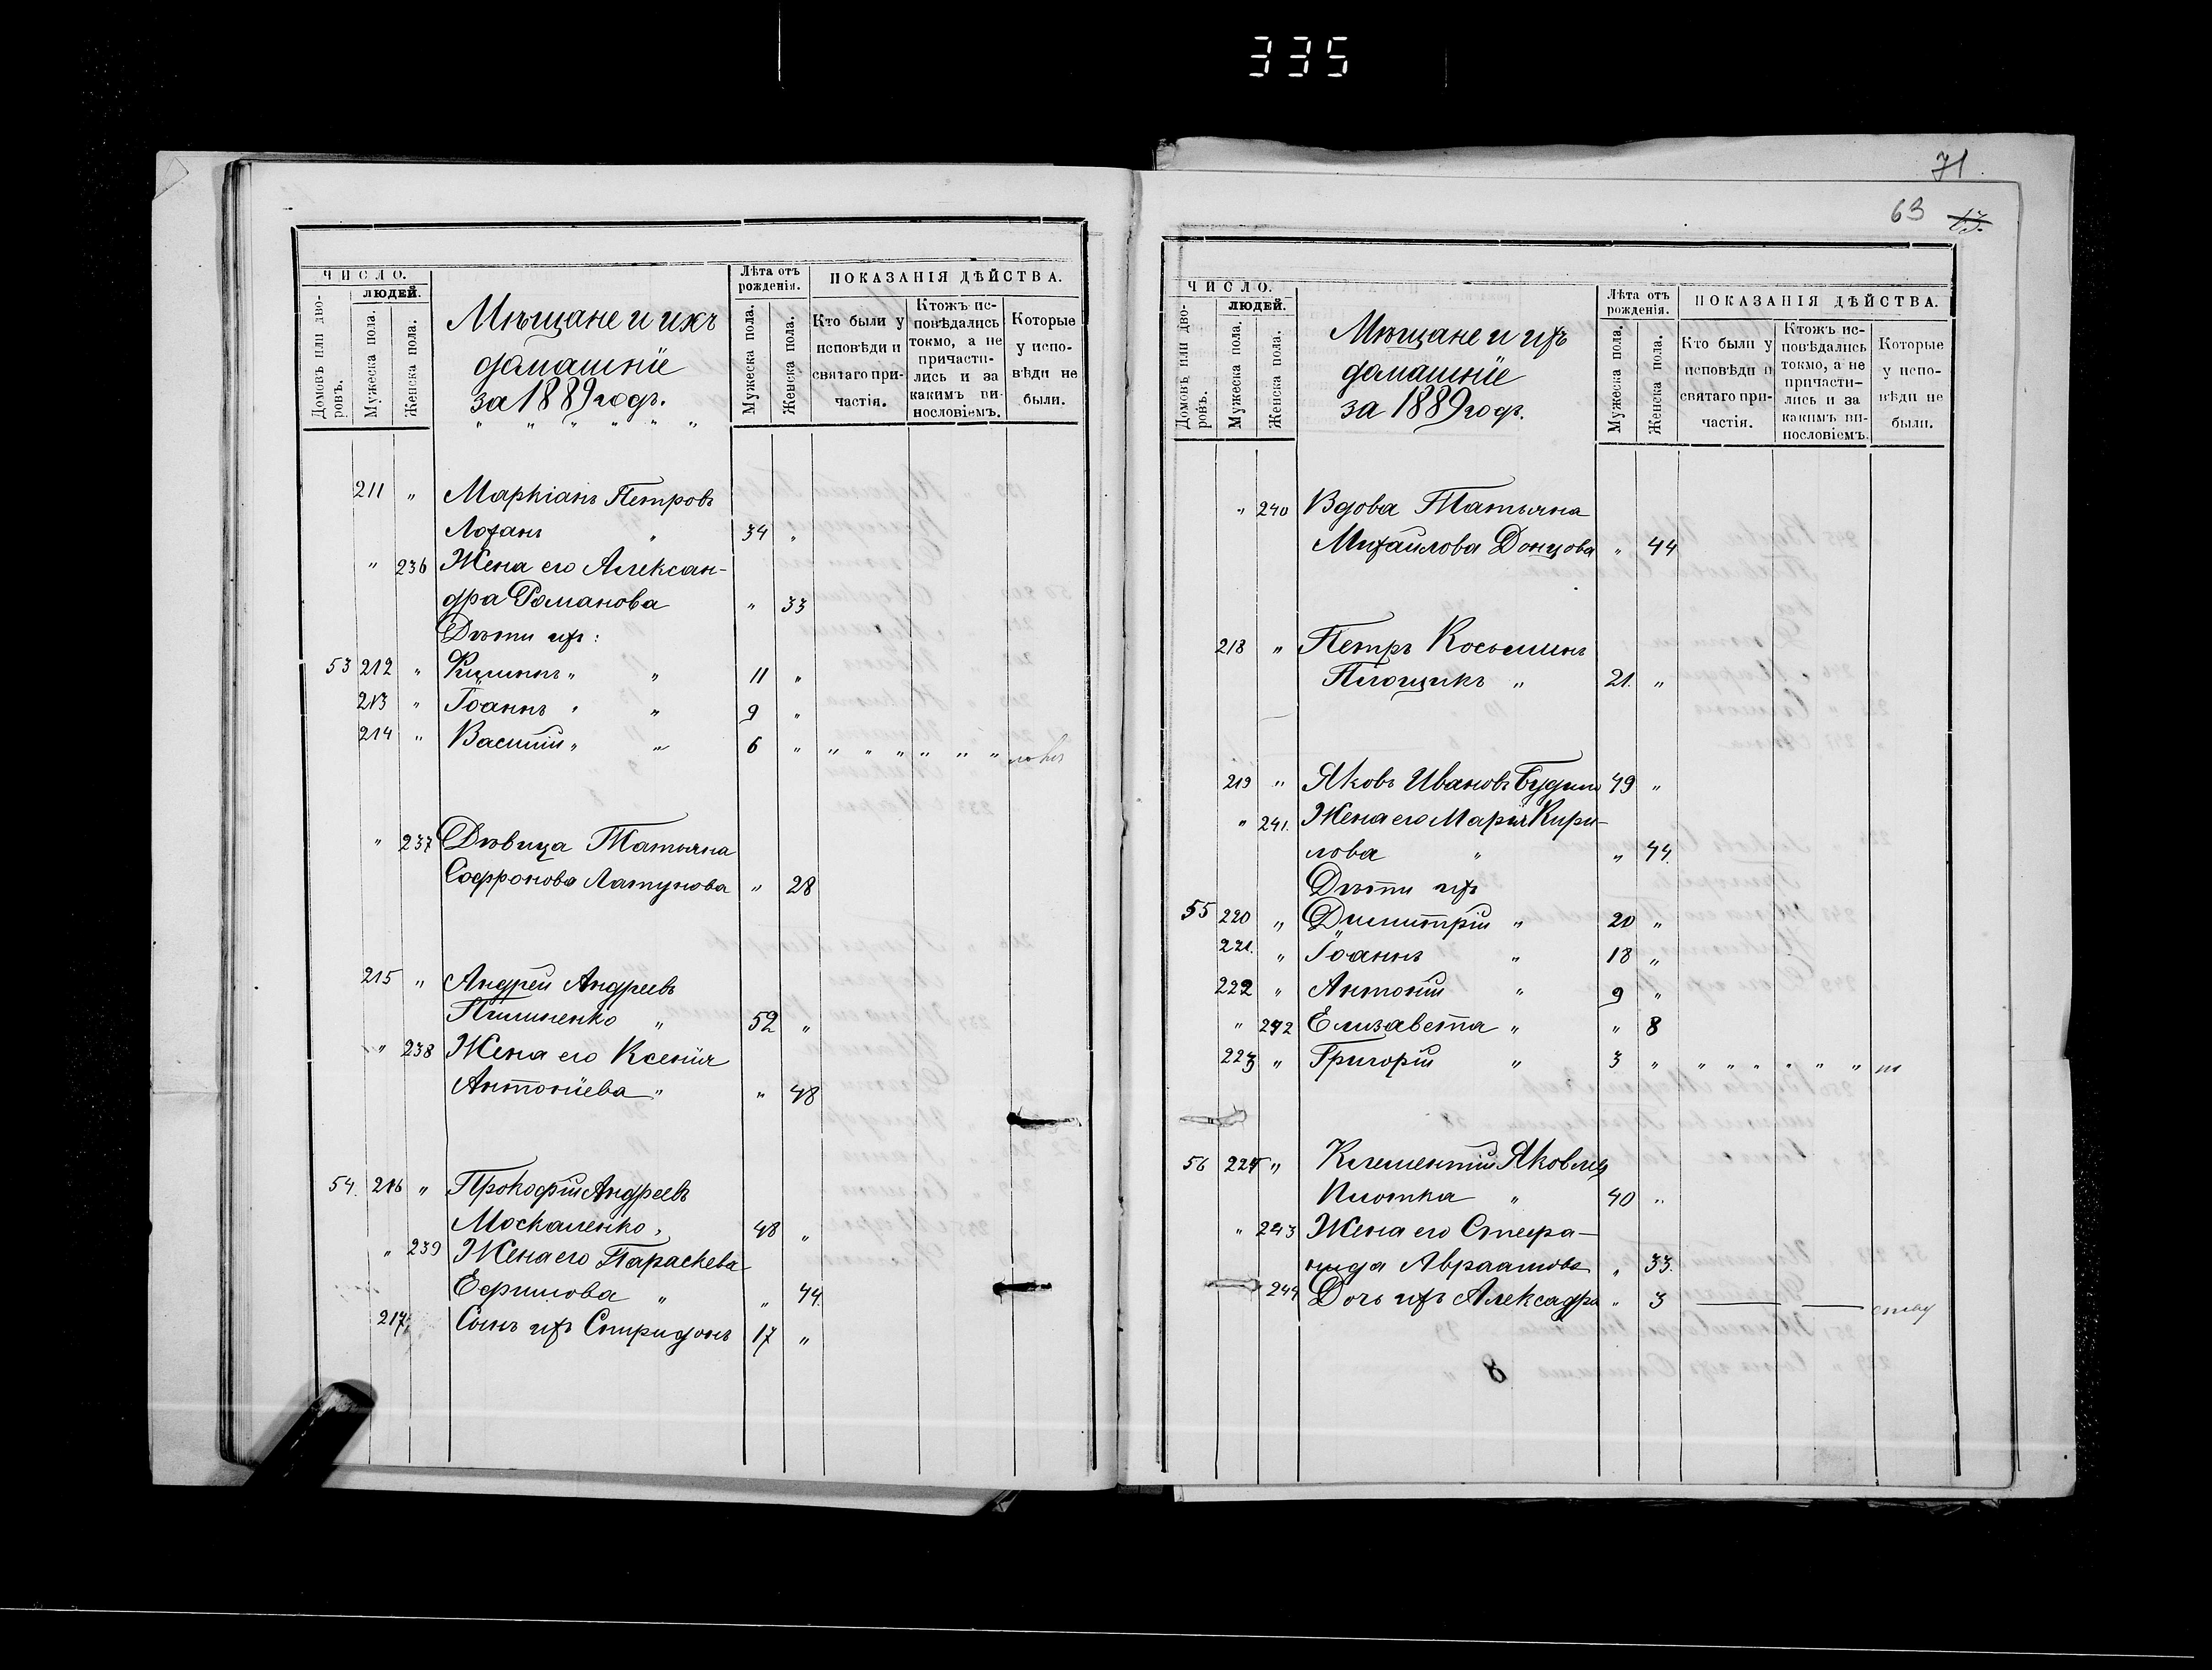 335
71
63
ЧИСЛО.
людей.
Домовъ или дворовъ.
Мужеска пола.
Женска пола.
Мѣщане и ихъ
домашніе
за 1889 годъ.
Лѣта отъ
рожденія.
Мужеска пола.
Женска пола.
ПОКАЗАНІЯ ДѢЙСТВА.
Кто были у
исповѣди и
святаго при-
частія.
Ктожъ ис-
повѣдались
токмо, а не
причасти-
лись и за
какимъ ви-
нословіемъ.
Которые
у испо-
вѣди не
были.
211 " Маркіанъ Петровъ
Лоханъ " 34 "
" 236 Жена его Алексан-
дра Романова " 33
Дѣти ихъ:
53 212 " " " 11 "
213 " Іоаннъ " " 9 "
214 " Василій " " 6 " " " " " " "
" 237 Дѣвица Татьяна
Софронова Латунова " 28
215 " Андрей Андреевъ
Пилипенко " 52 "
" 238 Жена его Ксенія
Антоніева " " 48
54. 216 " Прокофій Андреевъ
Москаленко " 48 "
" 239 Жена его Параскева
Ефимова " " 44.
217 " Сынъ ихъ Спиридонъ 17 "
ЧИСЛО.
людей.
Домовъ или дворовъ.
Мужеска пола.
Женска пола.
Мѣщане и ихъ
домашніе
за 1889 годъ.
Лѣта отъ
рожденія.
Мужеска пола.
Женска пола.
ПОКАЗАНІЯ ДѢЙСТВА.
Кто были у
исповѣди и
святаго при-
частія.
Ктожъ ис-
повѣдались
токмо, а не
причасти-
лись и за
какимъ ви-
нословіемъ.
Которые
у испо-
вѣди не
были.
" 240 Вдова Татьяна
Михаилова Донцова " 44
218 " Петръ Косьминъ
Площикъ " 21. "
219 " Яковъ Ивановъ 49 "
" 241. Жена его Марія Кири-
лова " " 44.
Дѣти ихъ
55 220 " Димитрій " 20 "
221. " Іоаннъ " 18 "
222 " Антоній " 9 "
" 242 Елизавета " " 8
223 " Григорій " 3 " " " " " " "
56 224 " Климентій Яковлевъ
Плотка " 40 "
" 243 Жена его Стефа-
нида Авраамова " 33.
244 Дочь ихъ Алексадра " 3
8